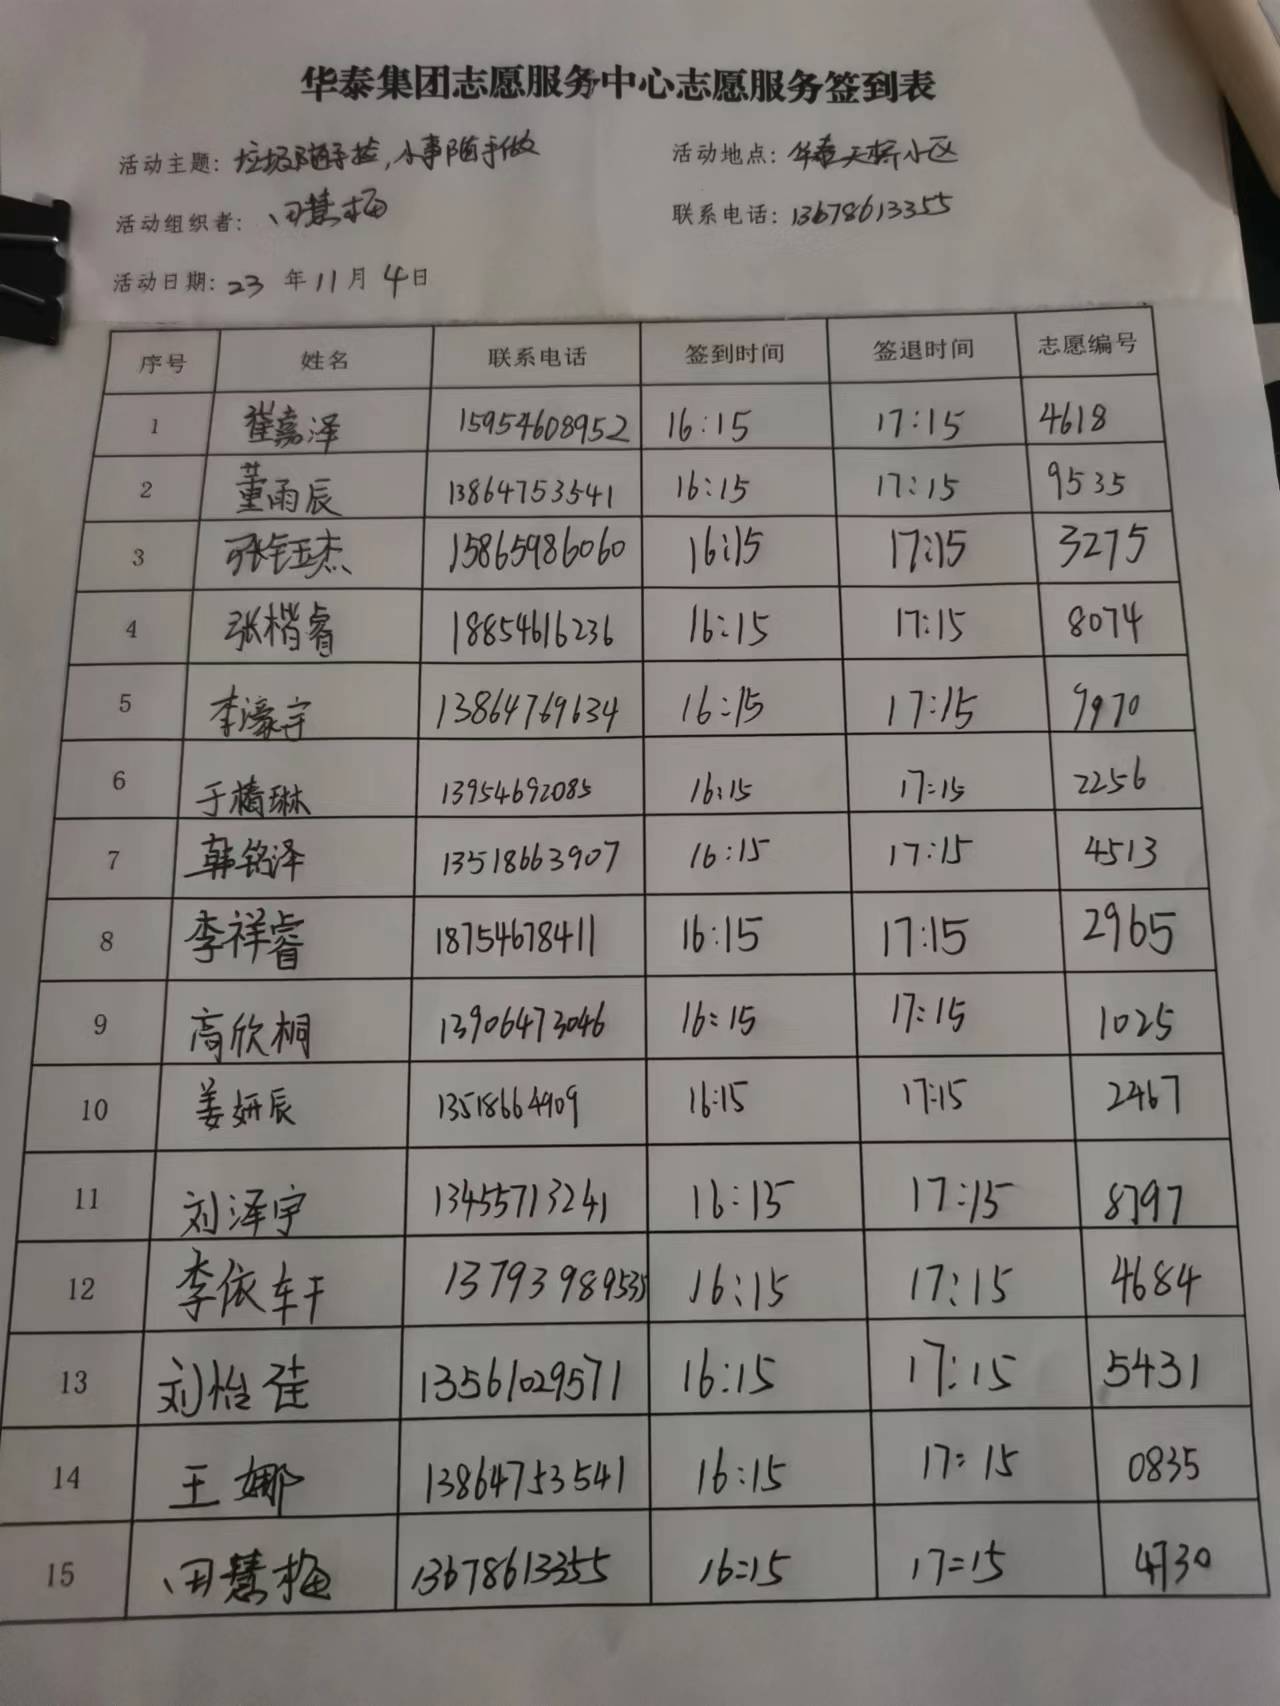 华泰集团志愿服务中心志愿服务签到表
活动主题：垃圾随手捡，小事随手做 活动地点：华泰天桥小区
活动组织者：田慧梅 联系电话：13678613355
活动日期：23 年 11 月 4 日
序号 姓名 联系电话 签到时间 签退时间 志愿编号
1 崔嘉泽 15954608952 16:15 17:15 4618
2 董雨辰 13864753541 16:15 17:15 9535
3 张钰杰 15865986060 16:15 17:15 3275
4 张楷睿 18854616236 16:15 17:15 8074
5 李濠宇 13864769634 16:15 17:15 9970
6 于楠琳 13954692085 16:15 17:15 2256
7 韩铭泽 13518663907 16:15 17:15 4513
8 李祥睿 18754678411 16:15 17:15 2965
9 高欣桐 13906473046 16:15 17:15 1025
10 姜妍辰 13518664909 16:15 17:15 2467
11 刘泽宇 13455713241 16:15 17:15 8797
12 李依轩 13793989535 16:15 17:15 4684
13 刘怡 13561029571 16:15 17:15 5431
14 王娜 13864753541 16:15 17:15 0835
15 田慧梅 13678613355 16:15 17:15 4730